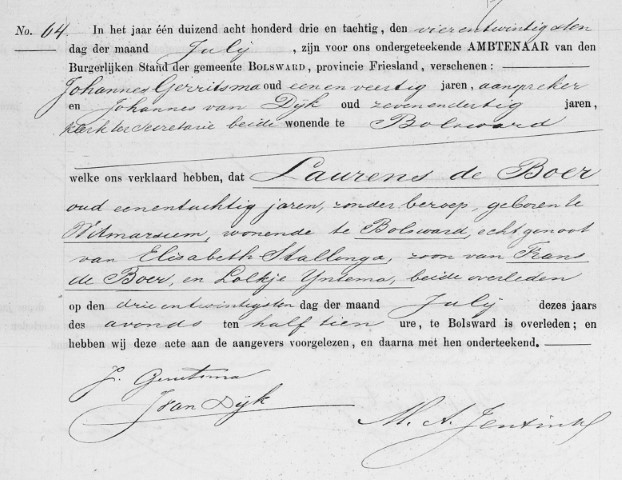 No. 64. In het jaar één duizend acht honderd drie en tachtig, den vierentwintigsten
dag der maand July, zijn voor ons ondergeteekende AMBTENAAR van den
Burgerlijken Stand der gemeente BOLSWARD, provincie Friesland, verschenen:
Johannes Gerritsma oud eenenveertig jaren, aanspreker
en Johannes van Dijk oud zevenendertig jaren,
klerk ter secretarie beide wonende te Bolsward
welke ons verklaard hebben, dat Laurens de Boer
oud eenentachtig jaren, zonder beroep, geboren te
Witmarsum, wonende te Bolsward, echtgenoot
van Elisabeth Stallenga, zoon van Frans
de Boer, en Lolkje Yntema, beide overleden
op den drieentwintigsten dag der maand July dezes jaars
des avonds ten half tien ure, te Bolsward is overleden; en
hebben wij deze acte aan de aangevers voorgelezen, en daarna met hen onderteekend.
J. Gerritsma
J van Dijk
M. A. Jentink